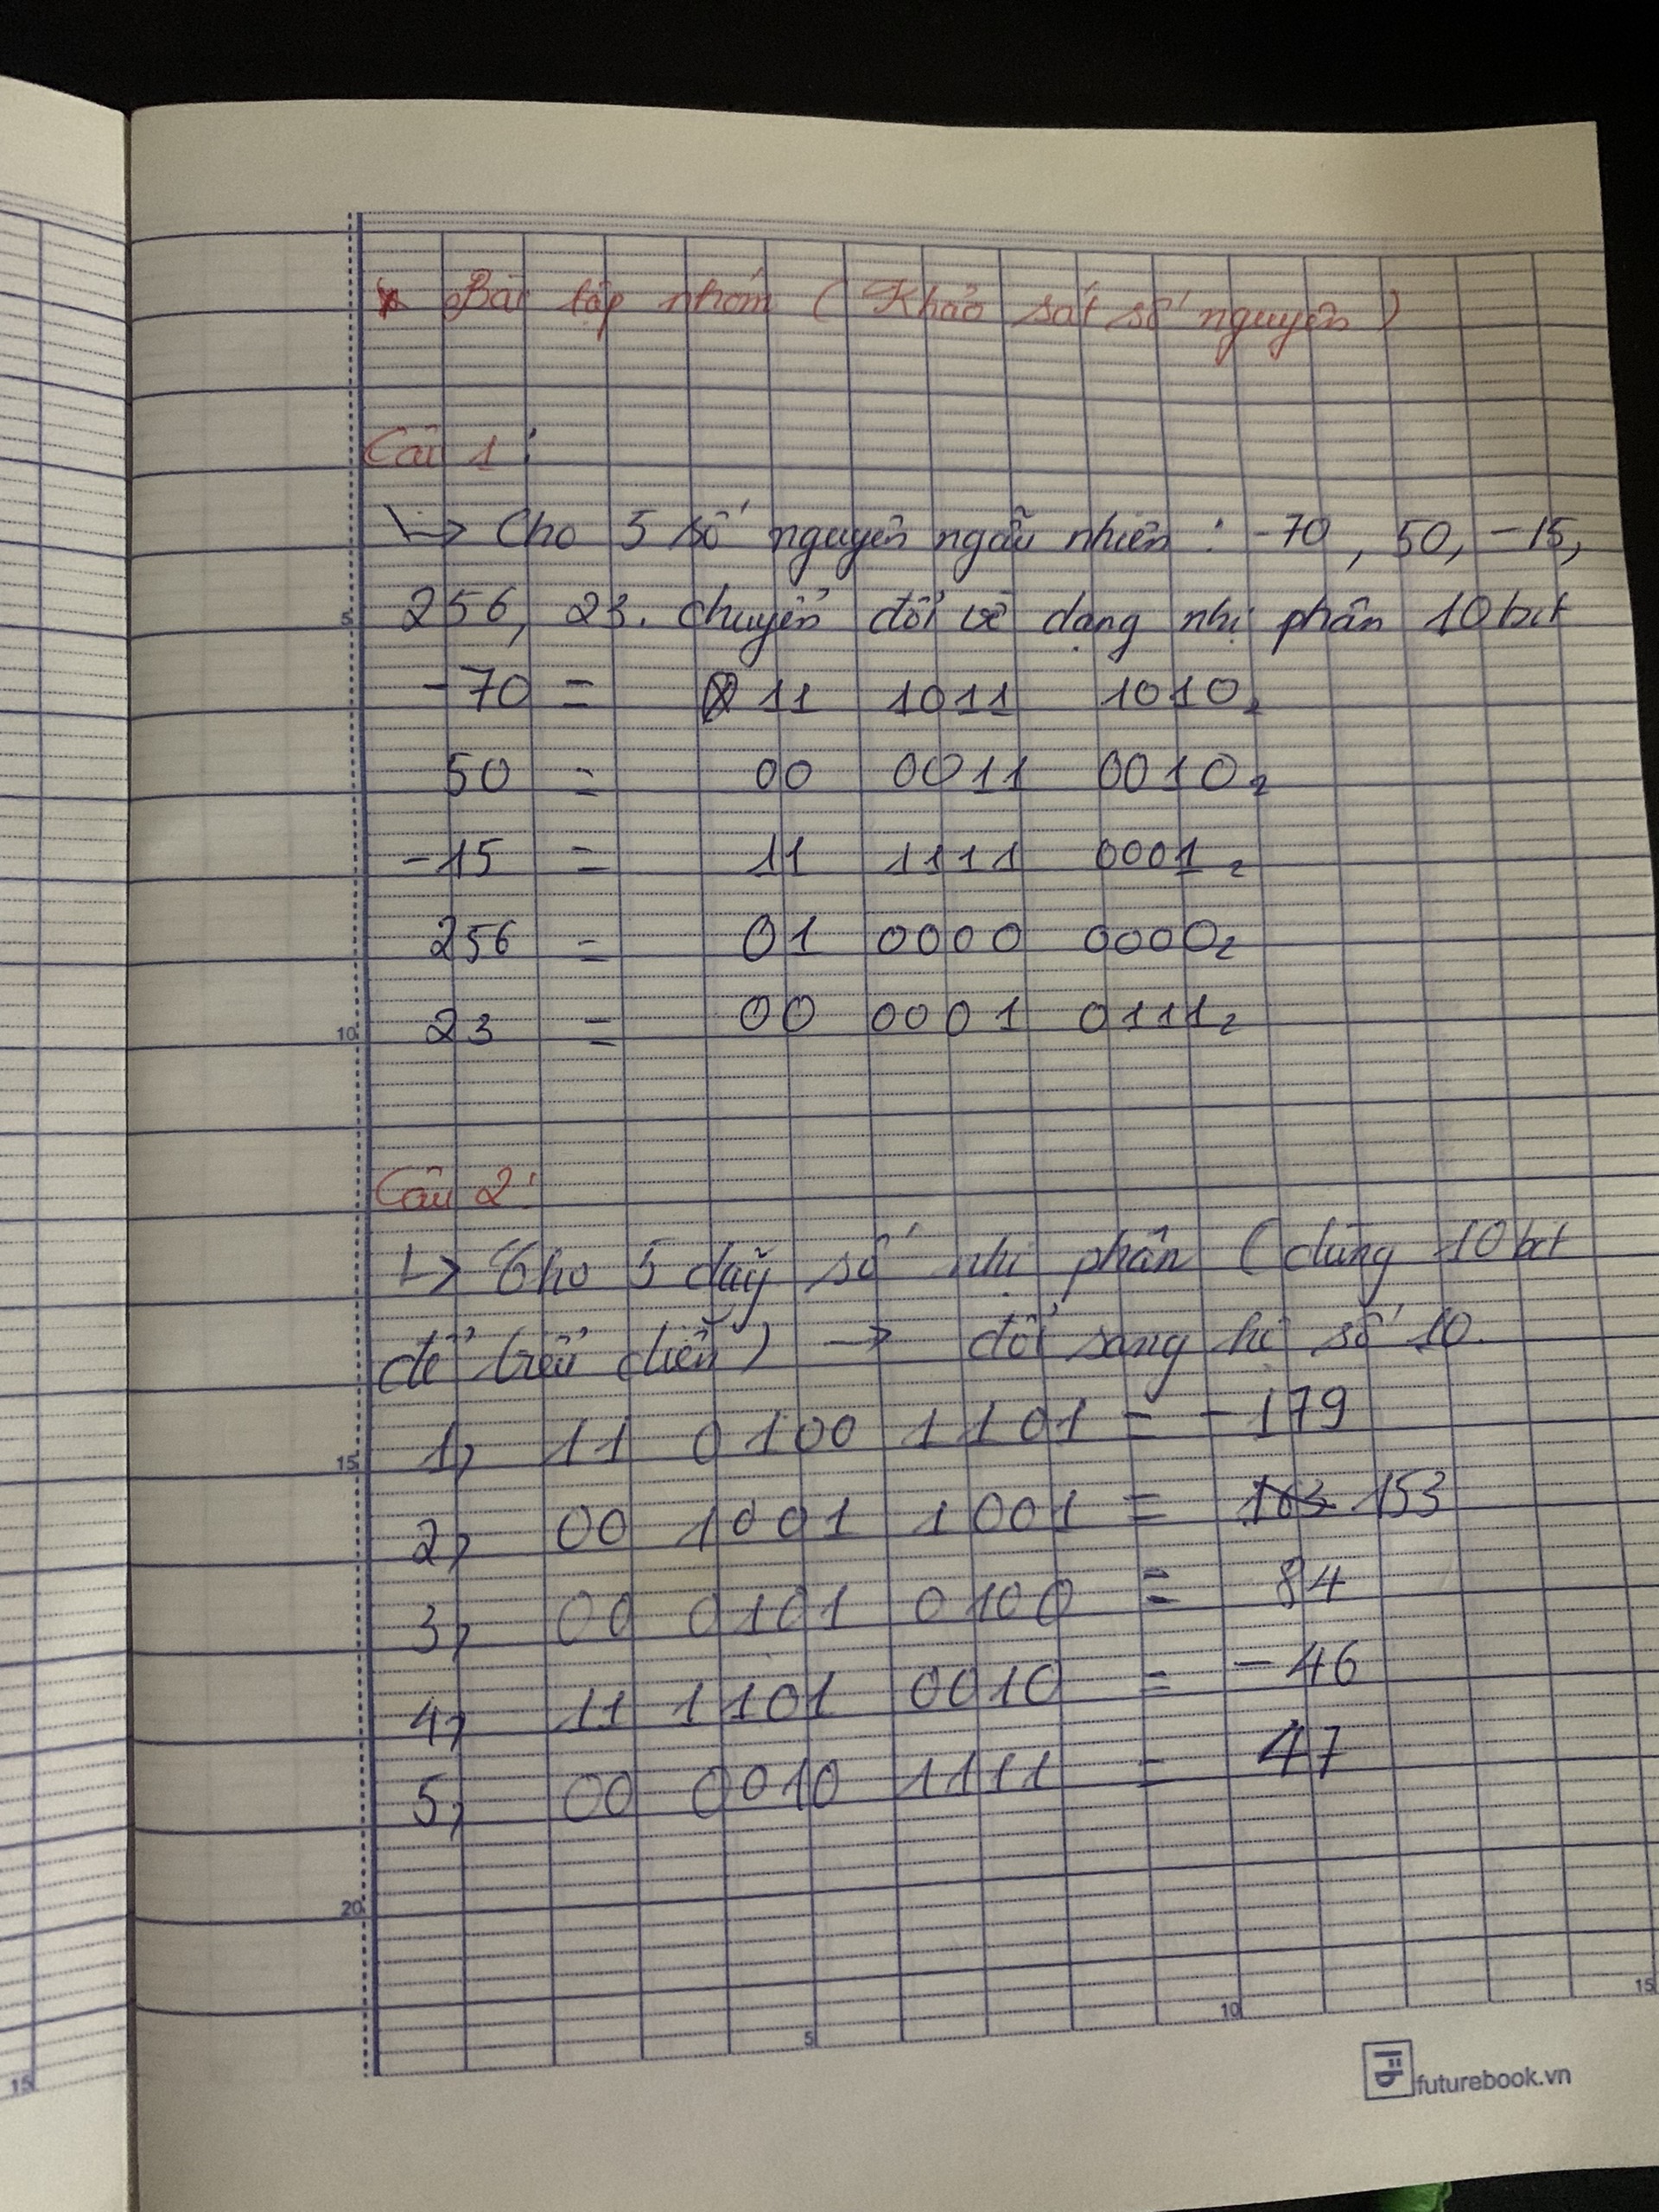 * Bài tập nhóm ( Khảo sát số nguyên )
Câu 1:
↳ Cho 5 số nguyên ngẫu nhiên : -70 , 50, -15,
256, 23. chuyển đổi về dạng nhị phân 10bit
-70 = 11 1011 1010₂
50 = 00 0011 0010₂
-15 = 11 1111 0001₂
256 = 01 0000 0000₂
23 = 00 0001 0111₂
Câu 2:
↳ Cho 5 dãy số nhị phân ( dùng 10bit
để biểu diễn ) → đổi sang hệ số 10.
1, 11 0100 1101 = -179
2, 00 1001 1001 = 163 153
3, 00 0101 0100 = 84
4, 11 1101 0010 = -46
5, 00 0010 1111 = 47
5
10
15
20
5
10
15
15
futurebook.vn